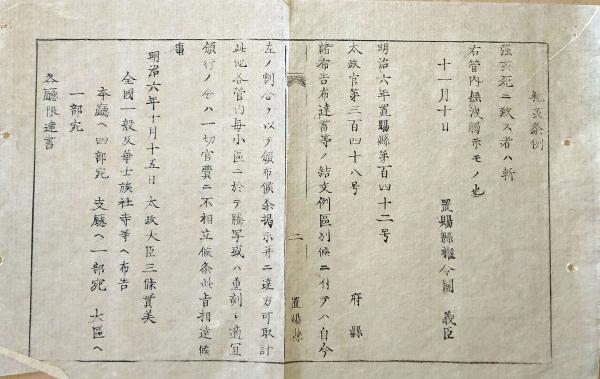 犯姦条例
強姦死ニ致ス者ハ斬
右管内無洩觸示モノ也
十一月十日
置賜縣権令関 義臣
明治六年置賜縣第百四十二号
太政官第三百四十八号
府縣
諸布告布達書等ノ結文例區別候ニ付テハ自今
二
置賜縣
左ノ割合ヲ以テ頒布候条掲示并ニ達方可取計
此他各管内毎小區ニ於テ謄写或ハ重刻シ適宜
頒行ノ分ハ一切官費ニ不相立候条此旨相達候
事
明治六年十月十五日 太政大臣三條實美
全國一般及華士族社寺等ヘ布告
本廳ヘ四部宛 支廳ヘ一部宛 大區ヘ
一部宛
各廳限達書